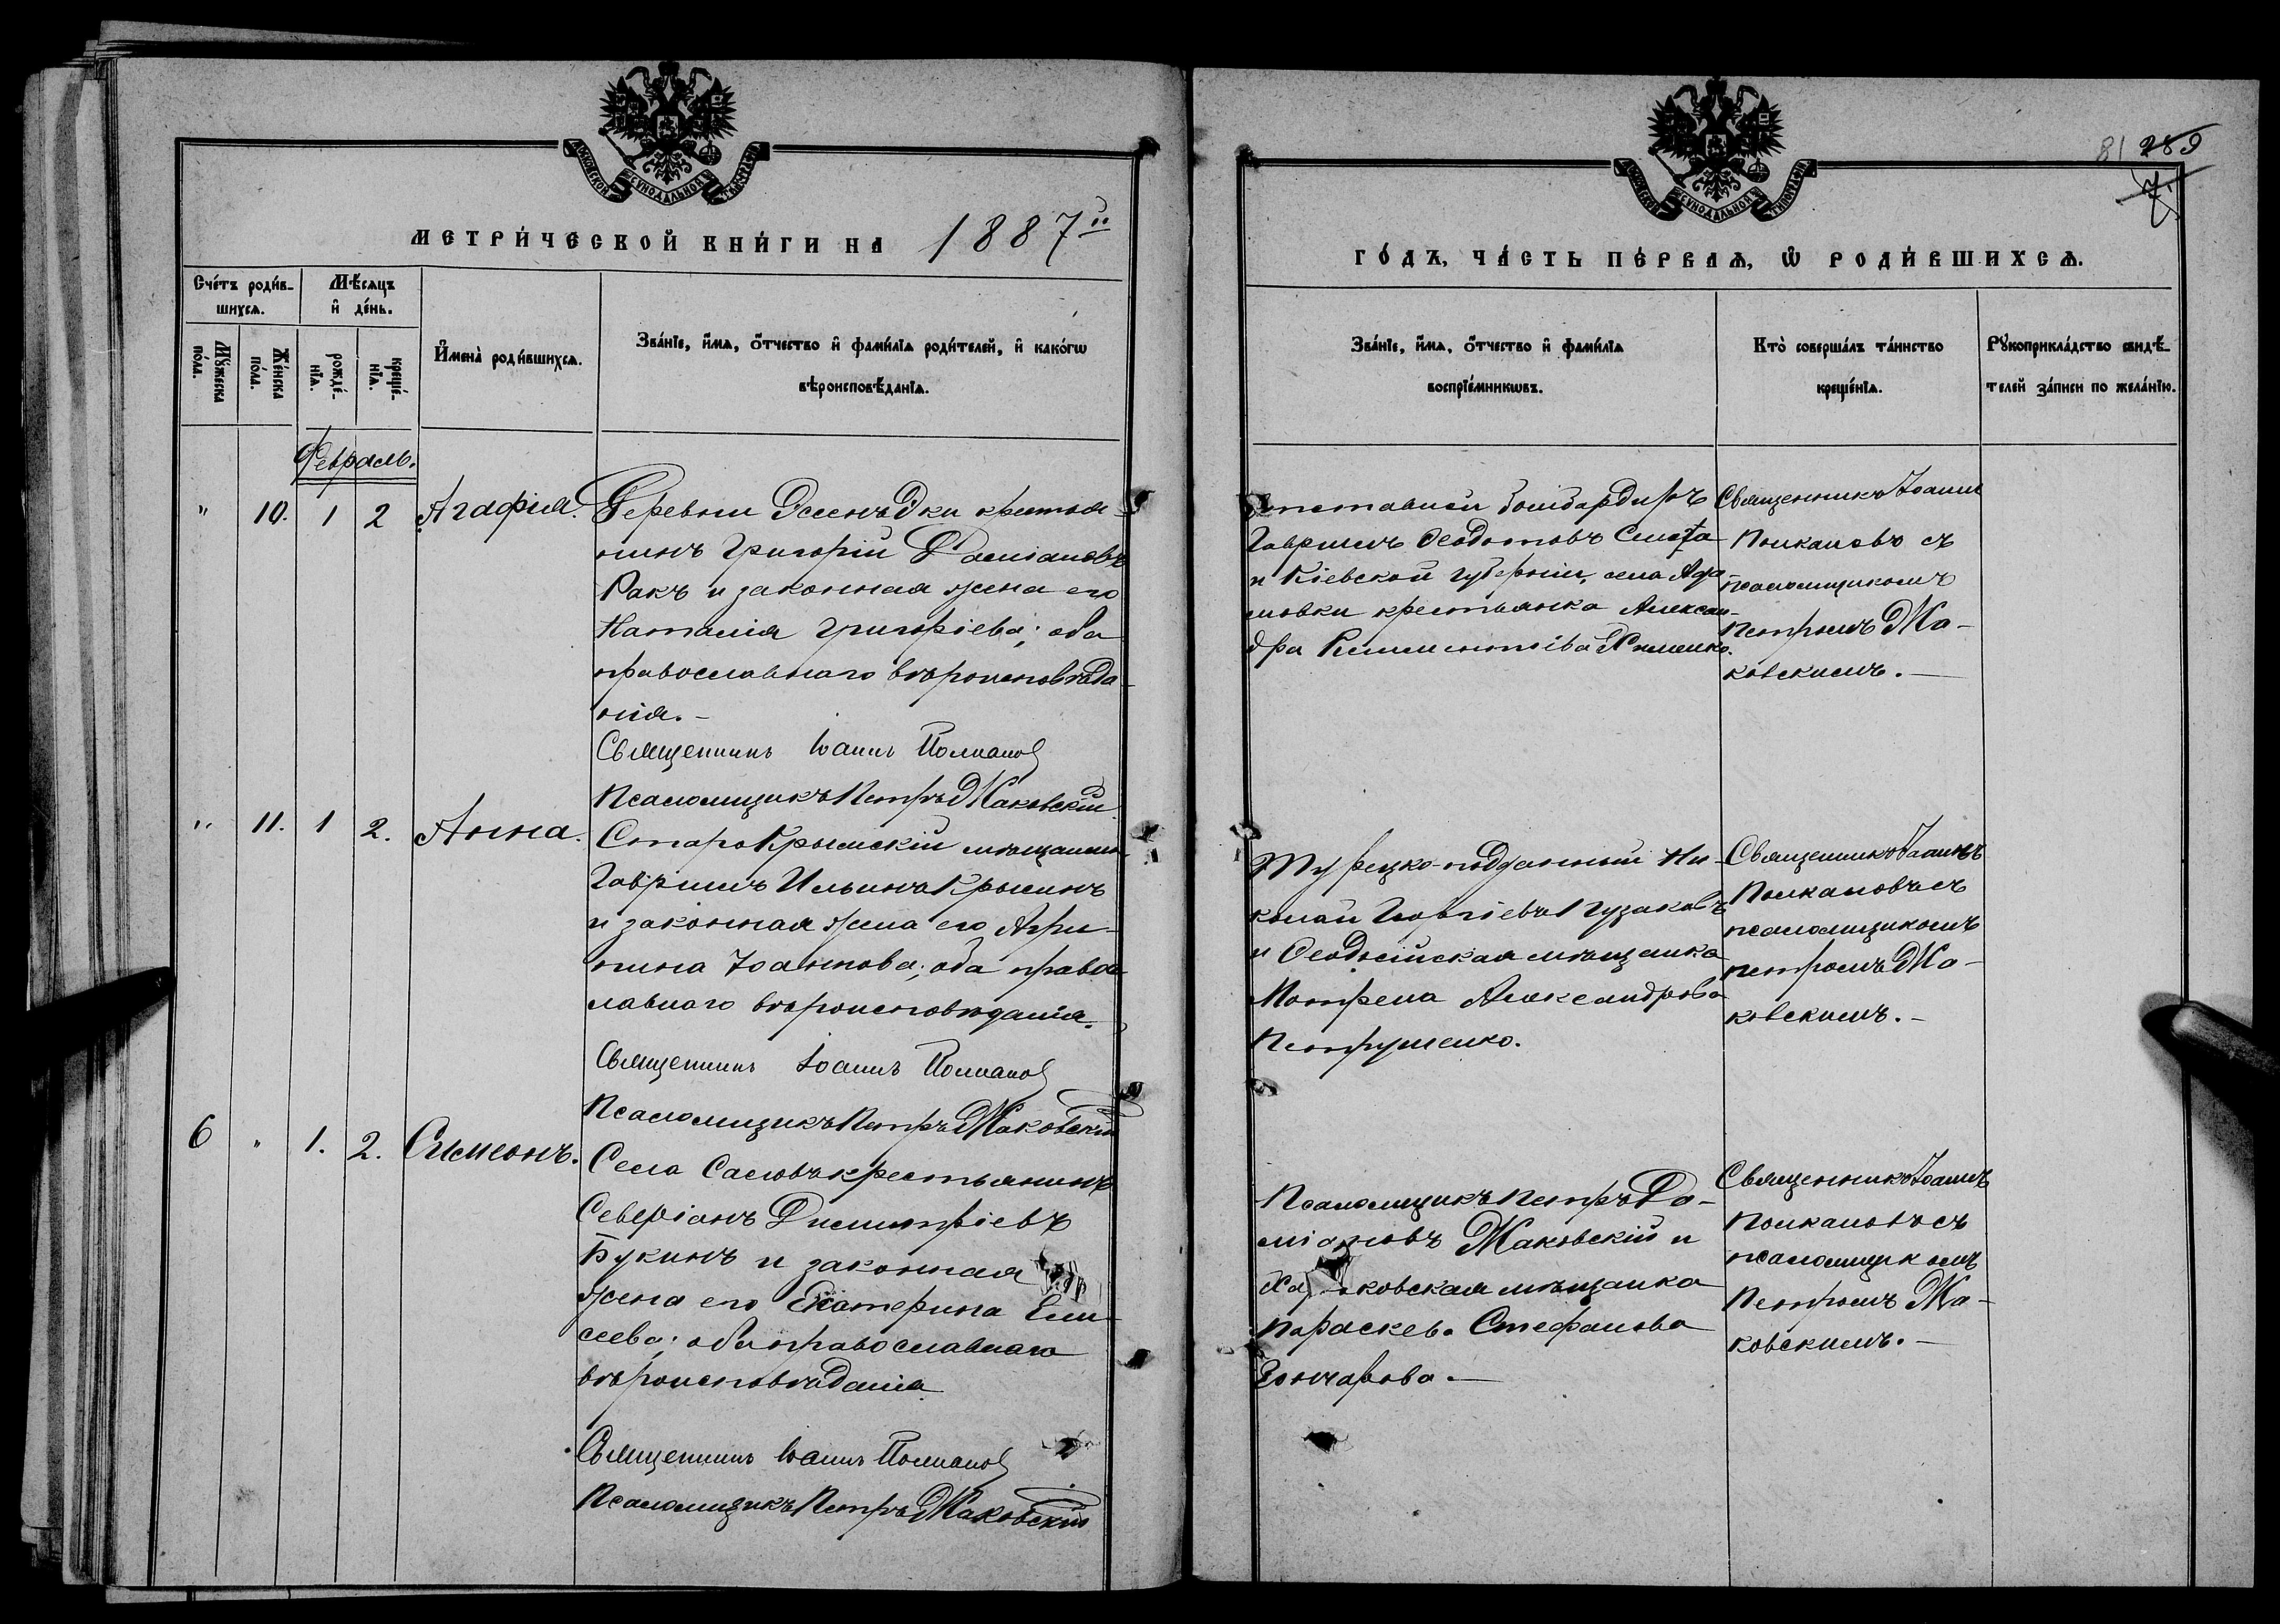 МОСКОВСКОЙ СѴНОДАЛЬНОЙ ТИПОГРАФІИ
МЕТРИ́ЧЕСКОЙ КНИ́ГИ НА 1887й
Сче́тъ роди́в-
шихсѧ.
Мѣ́сѧцъ
и҆ де́нь.
Мꙋ́жеска
по́ла.
Же́нска
по́ла.
рожде́-
нїѧ.
креще́-
нїѧ.
И҆мена̀ роди́вшихсѧ.
Зва́нїе, и҆́мѧ, ѻ҆́тчество и҆ фами́лїѧ роди́телей, и҆ како́гѡ
вѣроисповѣ́данїѧ.
Февраль.
" 10. 1 2 Агафія.
Деревни крестья-
нинъ Григорій Даміановъ
Ракъ и законная жена его
Наталія Григоріева; оба
православнаго вѣроисповѣда-
нія.-
Священникъ Іоаннъ Полкановъ
Псаломщикъ Петръ Жаковскій.
" 11. 1 2. Анна.
СтароКрымскій мѣщанинъ
Гавріилъ Ильинъ Крыминъ
и законная жена его Агри-
пина Іоаннова; оба право-
славнаго вѣроисповѣданія.
Священникъ Іоаннъ Полкановъ
Псаломщикъ Петръ Жаковскій
6 " 1. 2. Сѵмеонъ.
Села Саловъ крестьянинъ
Северіанъ Димитріевъ
Букинъ и законная
жена его Екатерина Ели-
сеева; оба православнаго
вѣроисповѣданія.
Священникъ Іоаннъ Полкановъ
Псаломщикъ Петръ Жаковскій
81 289
7
МОСКОВСКОЙ СѴНОДАЛЬНОЙ ТИПОГРАФІИ
ГО́ДЪ, ЧА́СТЬ ПЕ́РВАѦ, Ѡ҆ РОДИ́ВШИХСѦ.
Зва́нїе, и҆́мѧ, ѻ҆́тчество и҆ фами́лїѧ
воспрїе́мникѡвъ.
Кто̀ соверша́лъ та́инство
креще́нїѧ.
Рꙋкоприкла́дство свидѣ́-
телей за́писи по жела́нїю.
Отставной бомбардиръ
Гавріилъ Ѳеодотовъ
и Кіевской губерніи, села Ада-
мовки крестьянка Алексан-
дра Климентіева
Священникъ Іоаннъ
Полкановъ съ
псаломщикомъ
Петромъ Жа-
ковскимъ.-
Турецко-подданный Ни-
колай Георгіевъ Гузаковъ
и Ѳеодосійская мѣщанка
Матрена Александрова
Петрушенко.
Священникъ Іоаннъ
Полкановъ съ
псаломщикомъ
Петромъ Жа-
ковскимъ.-
Псаломщикъ Петръ Да-
міановъ Жаковскій и
мѣщанка
Параскева Стефанова
Гончарова.-
Священникъ Іоаннъ
Полкановъ съ
псаломщикомъ
Петромъ Жа-
ковскимъ.-